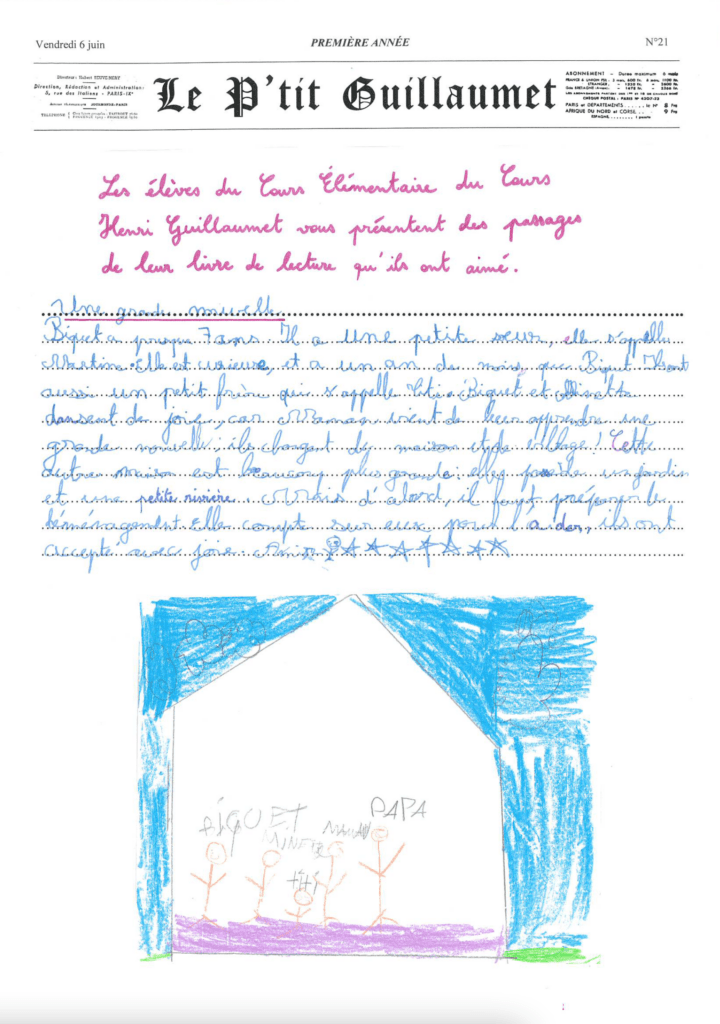 Vendredi 6 juin
PREMIÈRE ANNÉE
N°21
Directeur: Hubert
Direction, Rédaction et Administration:
5, rue des Italiens - PARIS-IXᵉ
Le P'tit Guillaumet
ABONNEMENT - Durée maximum 6 mois
CHEQUE POSTAL: PARIS Nº 4207-23
PARIS et DÉPARTEMENTS ...... le Nº 8 Frs
AFRIQUE DU NORD et CORSE .. 9 Frs
Les élèves du Cours Élémentaire du Cours
Henri Guillaumet vous présentent des passages
de leur livre de lecture qu'ils ont aimé.
Une grande nouvelle
Biquet a presque 7 ans. Il a une petite sœur, elle s'appelle
Elle est curieuse, et a un an de moins que Biquet
aussi un petit frère qui s'appelle Titi. Biquet et
dansent de joie, car Maman vient de leur apprendre une
grande nouvelle, ils changent de maison et de village! Cette
autre maison est beaucoup plus grande: elle possède un jardin
et une petite rivière. Mais d'abord, il faut préparer le
déménagement. Elle compte sur eux pour l'aider, ils ont
accepté avec joie.
BIQUET
MAMAN
PAPA
titi